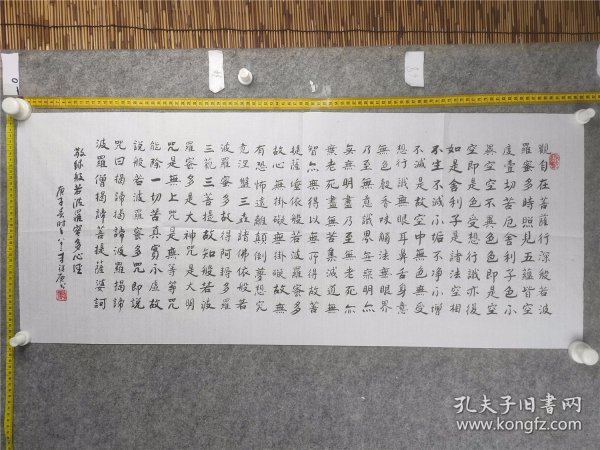 觀自在菩薩行深般若波
羅蜜多時照見五蘊皆空
度一切苦厄舍利子色不
異空空不異色色即是空
空即是色受想行識亦復
如是舍利子是諸法空相
不生不滅不垢不淨不增
不減是故空中無色無受
想行識無眼耳鼻舌身意
無色聲香味觸法無眼界
乃至無意識界無無明亦
無無明盡乃至無老死亦
無老死盡無苦集滅道無
智亦無得以無所得故菩
提薩埵依般若波羅蜜多
故心無掛礙無掛礙故無
有恐怖遠離顛倒夢想究
竟涅盤三世諸佛依般若
波羅蜜多故得阿耨多羅
三藐三菩提故知般若波
羅蜜多是大神咒是大明
咒是無上咒是無等等咒
能除一切苦真實不虛故
說般若波羅蜜多咒即說
咒曰揭諦揭諦波羅揭諦
波羅僧揭諦菩提薩婆訶
敬錄般若波羅蜜多心經
庚子
孔夫子旧书网
www.kongfz.com